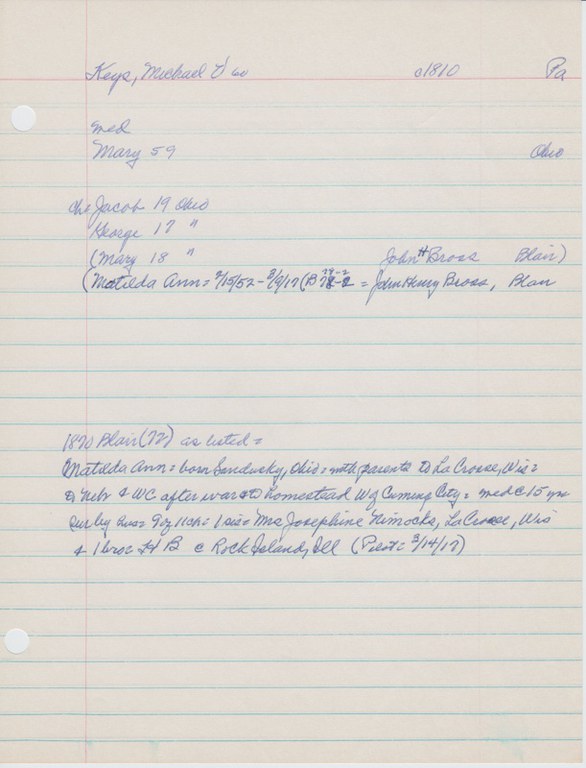 Keys, Michael 60 c1810 Pa
med
Mary 59 Ohio
ch= Jacob 19 Ohio
George 17 "
(Mary 18 " John H Bross Blair)
(Matilda Ann = 2/15/52 - 3/9/17 (B 78-2 = John Henry Bross, Blair
1870 Blair (72) as listed =
Matilda Ann = born Sandusky, Ohio = with parents to LaCrosse, Wis =
to Neb & WC after war = to homestead W of Cuming City = med c 15 yrs
sur by hus = 9 of 11 ch = 1 sis = Mrs Josephine Nimocks, LaCrosse, Wis
& 1 bro = H B c Rock Island, Ill (Pilot = 3/14/17)